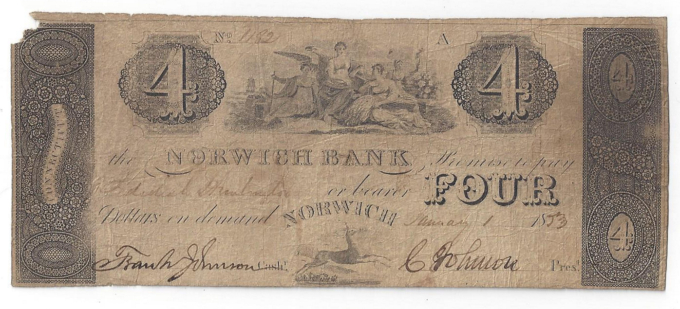 No 1182 A
4 4
4
CONNECTICUT
the NORWICH BANK Promise to pay
or bearer FOUR
Dollars on demand NORWICH January 1 1853
4
Frank Johnson Cash! C Johnson Pres!